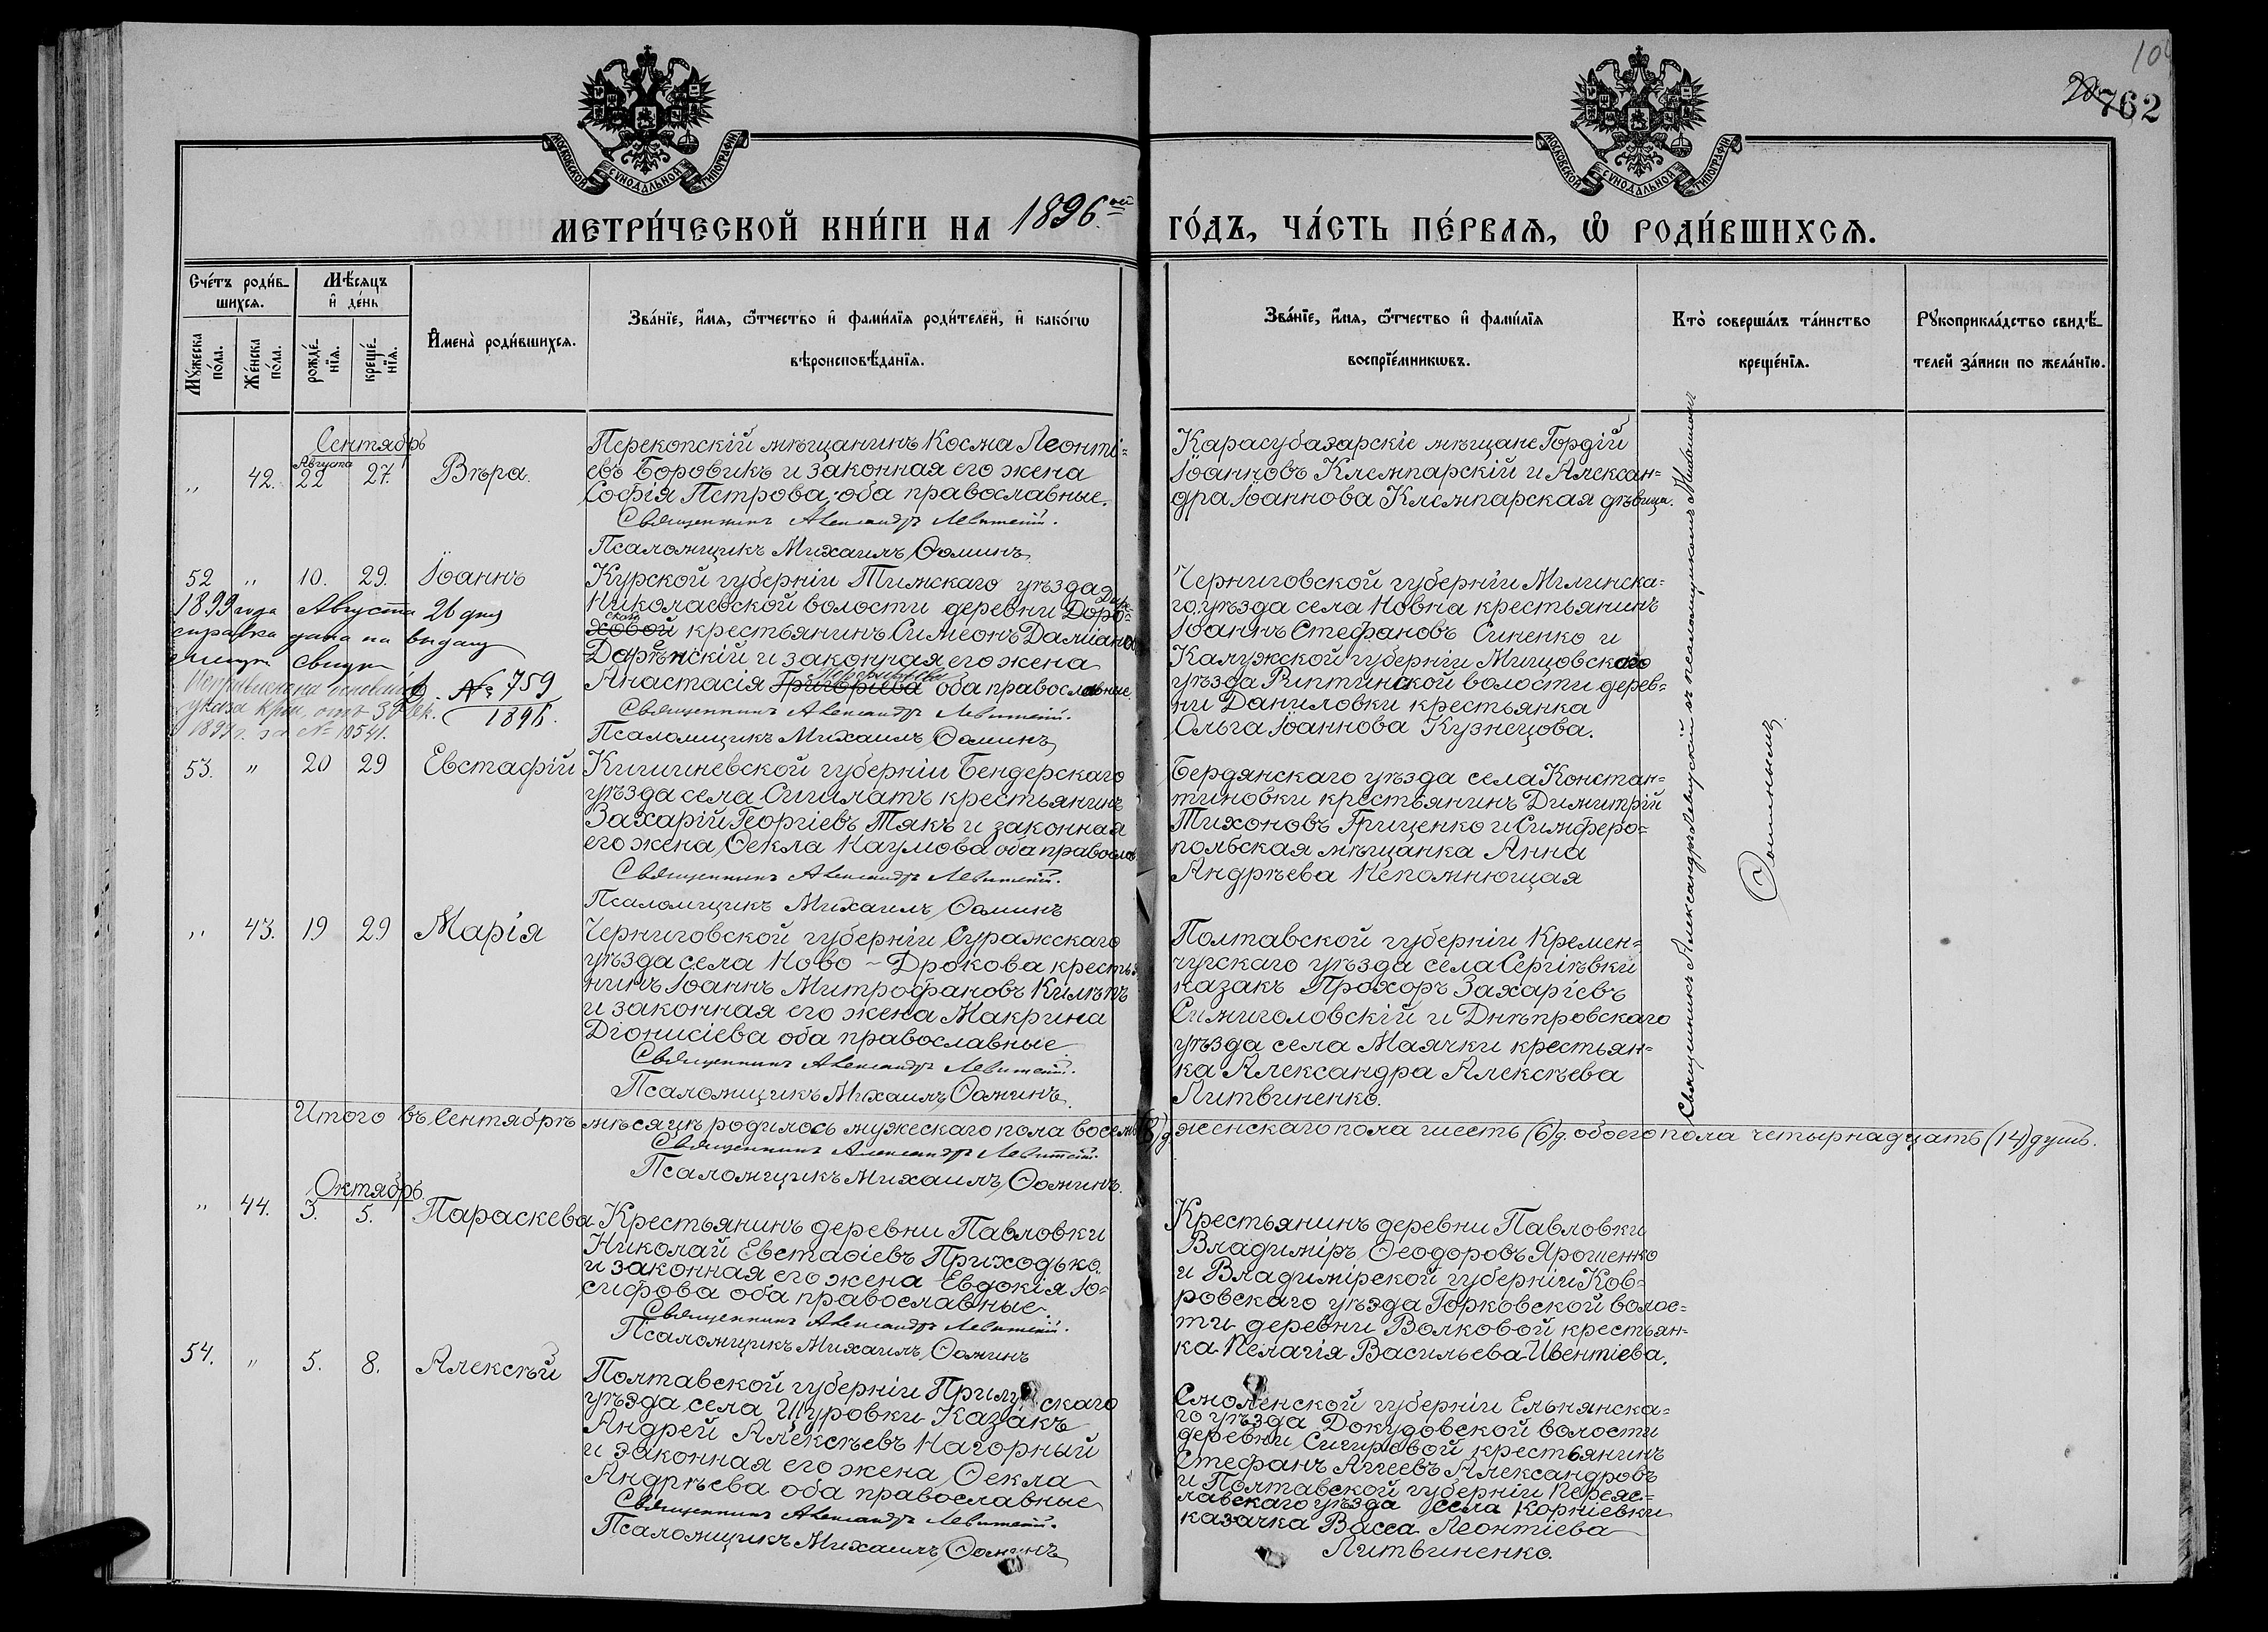 762
МОСКОВСКОЙ СУНОДАЛЬНОЙ ТИПОГРАФІИ
МОСКОВСКОЙ СУНОДАЛЬНОЙ ТИПОГРАФІИ
МЕТРИ́ЧЕСКОЙ КНИ́ГИ НА 1896ой ГО́ДЪ, ЧА́СТЬ ПЕ́РВАѦ, Ѡ РОДИ́ВШИХСѦ.
Сче́тъ роди́в-
шихсѧ.
Мꙋ́жеска по́ла.
Же́нска по́ла.
Мѣ́сѧцъ и де́нь
рожде́-
нїѧ.
креще́-
нїѧ.
Имена̀ роди́вшихсѧ.
Зва́нїе, и́мѧ, ѻ́тчество и фами́лїѧ роди́телей, и како́гѡ
вѣроисповѣ́данїѧ.
Зва́нїе, и́мѧ, ѻ́тчество и фами́лїѧ
воспрїе́мникѡвъ.
Кто̀ соверша́лъ та́инство
креще́нїѧ.
Рꙋкоприкла́дство свидѣ́-
телей за́писи по жела́нїю.
Сентябрь
Августа
" 42. 22 27. Вѣра.
Перекопскій мѣщанинъ Косма Леонті=
евъ Боровикъ и законная его жена
Софія Петрова, оба православные.
Священникъ Александръ Левитскій.
Псаломщикъ Михаилъ Ѳоминъ
Карасубазарскіе мѣщане Гордій
Іоанновъ Клемпарскій и Алексан=
дра Іоаннова Клемпарская дѣвица.
52 " 10. 29. Іоаннъ
Курской губерніи Тимскаго уѣзда
Николаевской волости деревни Доро=
ховой крестьянинъ Симеонъ Даміановъ
Дарѣнскій и законная его жена
Анастасія Григорьева оба православные.
Священникъ Александръ Левитскій.
Псаломщикъ Михаилъ Ѳоминъ
1899 года Августа 26 дня
справка дана на выдачу
№ 759
1896.
1899 г. за № 10541.
Черниговской губерніи Мглинска=
го уѣзда села Новна крестьянинъ
Іоаннъ Стефановъ Синенко и
Калужской губерніи Мищовского
уѣзда Рыптинской волости дерев=
ни Даниловки крестьянка
Ольга Іоаннова Кузнецова.
53. " 20 29 Евстафій
Кишиневской губерніи Бендерскаго
уѣзда села крестьянинъ
Захарій Георгіевъ Тякъ и законная
его жена Ѳекла Наумова оба правосла
Священникъ Александръ Левитскій.
Псаломщикъ Михаилъ Ѳоминъ
Бердянскаго уѣзда села Констан=
тиновки крестьянинъ Димитрій
Тихоновъ Гриценко и Симферо=
польская мѣщанка Анна
Андрѣева Непомнющая
" 43. 19 29 Марія
Черниговской губерніи Суражскаго
уѣзда села Ново-Дрокова крестья
нинъ Іоаннъ Митрофановъ
и законная его жена Макрина
Діонисіева оба православные
Священникъ Александръ Левитскій.
Псаломщикъ Михаилъ Ѳоминъ.
Полтавской губерніи Кремен=
чугскаго уѣзда села Сергіѣвки
казакъ Прохоръ Захаріевъ
Симиголовскій и Днѣпровскаго
уѣзда села Маячки крестьян=
ка Александра Алексѣева
Литвиненко.
Священникъ Александръ Левитскій съ псаломщикомъ Михаиломъ
Ѳоминымъ.
Итого въ Сентябрѣ мѣсяцѣ родилось мужескаго пола восемь (8) д. женскаго пола шесть (6) д. обоего пола четырнадцать (14) душъ.
Священникъ Александръ Левитскій.
Псаломщикъ Михаилъ Ѳоминъ.
Октябрь.
" 44. 3. 5. Параскева
Крестьянинъ деревни Павловки
Николай Евстафіевъ Приходько
и законная его жена Евдокія Іо=
сифова оба православные.
Священникъ Александръ Левитскій.
Псаломщикъ Михаилъ Ѳоминъ
Крестьянинъ деревни Павловки
Владиміръ Ѳеодоровъ Ярошенко
и Владимірской губерніи Ков=
ровскаго уѣзда Горковской волос=
ти деревни Волковой крестьян=
ка Пелагія Васильева Ивентіева.
54. " 5. 8. Алексѣй
Полтавской губерніи Прилукскаго
уѣзда села Щуровки Казакъ
Андрей Алексѣевъ Нагорный
и законная его жена Ѳекла
Андрѣева оба православные
Священникъ Александръ Левитскій.
Псаломщикъ Михаилъ Ѳоминъ
Смоленской губерніи Ельнянска=
го уѣзда Докудовской волости
деревни Сигировой крестьянинъ
Стефанъ Аггеевъ Александровъ
и Полтавской губерніи Переяс=
лавскаго уѣзда села Корніевки
казачка Васса Леонтіева
Литвиненко.